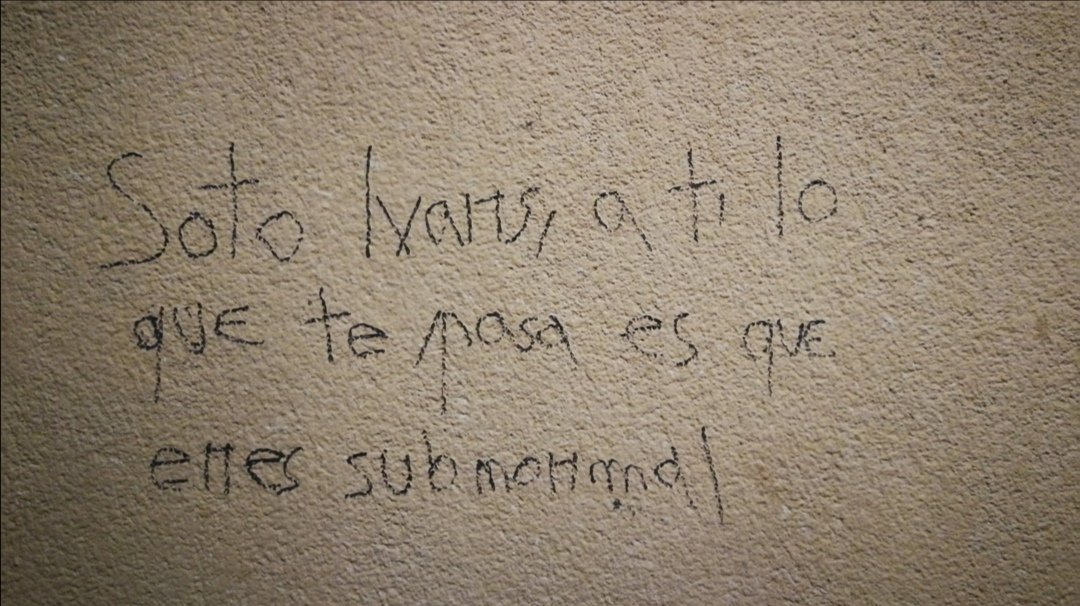 Soto Ivars, a ti lo
que te pasa es que
eres submormal